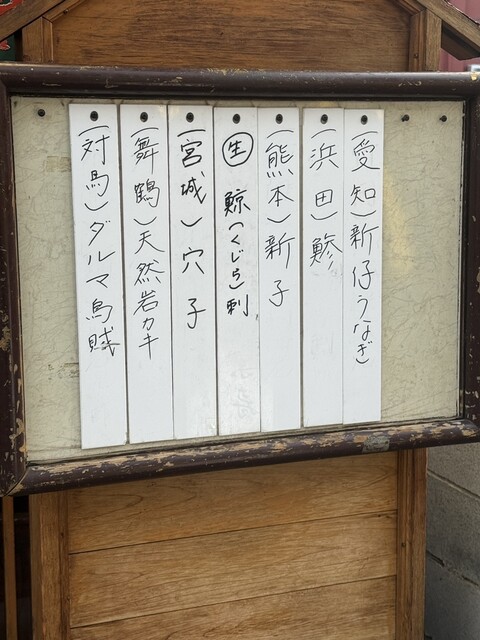 (愛知)新仔うなぎ
(浜田)鯵
(熊本)新子
生 鯨(くじら)刺
(宮城)穴子
(舞鶴)天然岩カキ
(対馬)ダルマ烏賊